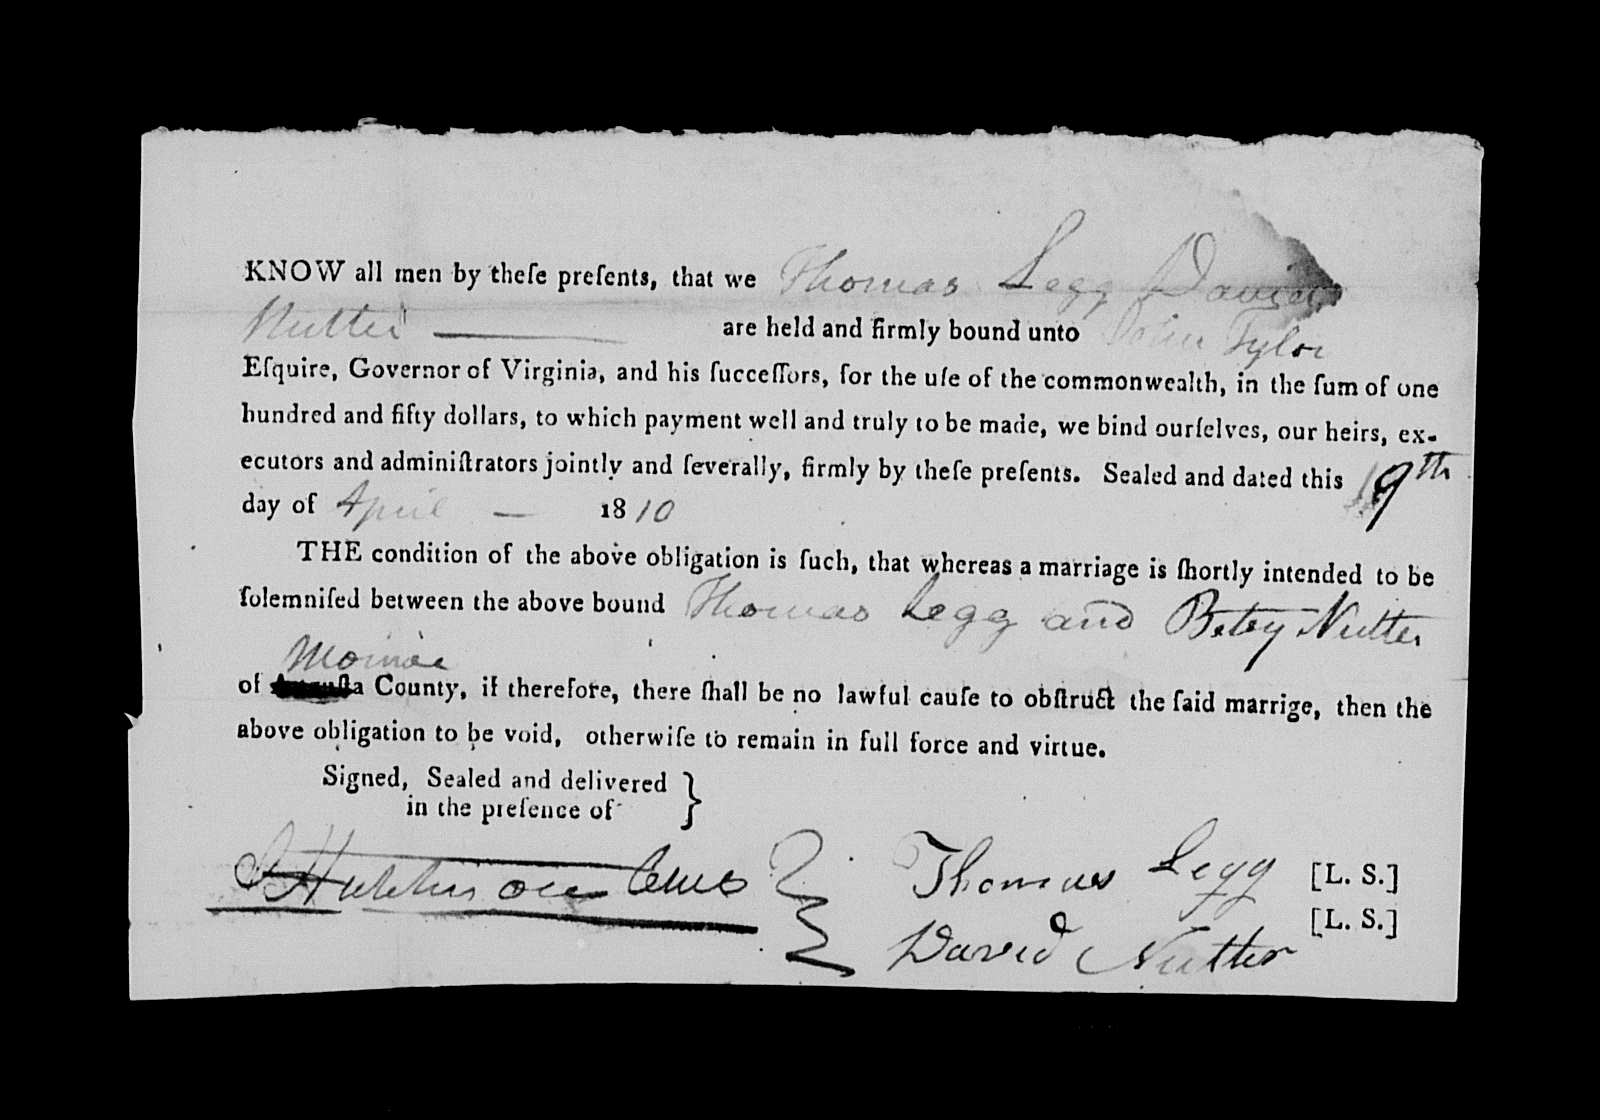 KNOW all men by theſe preſents, that we Thomas Legg David
Nutter are held and firmly bound unto John Tyler
Eſquire, Governor of Virginia, and his ſucceſſors, for the uſe of the commonwealth, in the ſum of one
hundred and fifty dollars, to which payment well and truly to be made, we bind ourſelves, our heirs, ex-
ecutors and adminiſtrators jointly and ſeverally, firmly by theſe preſents. Sealed and dated this 19th
day of April — 1810
THE condition of the above obligation is ſuch, that whereas a marriage is ſhortly intended to be
ſolemniſed between the above bound Thomas Legg and Betsy Nutter
Monroe
of County, if therefore, there ſhall be no lawful cauſe to obſtruct the ſaid marrige, then the
above obligation to be void, otherwiſe to remain in full force and virtue.
Signed, Sealed and delivered }
in the preſence of
Hutchinson
Thomas Legg [L. S.]
David Nutter [L. S.]